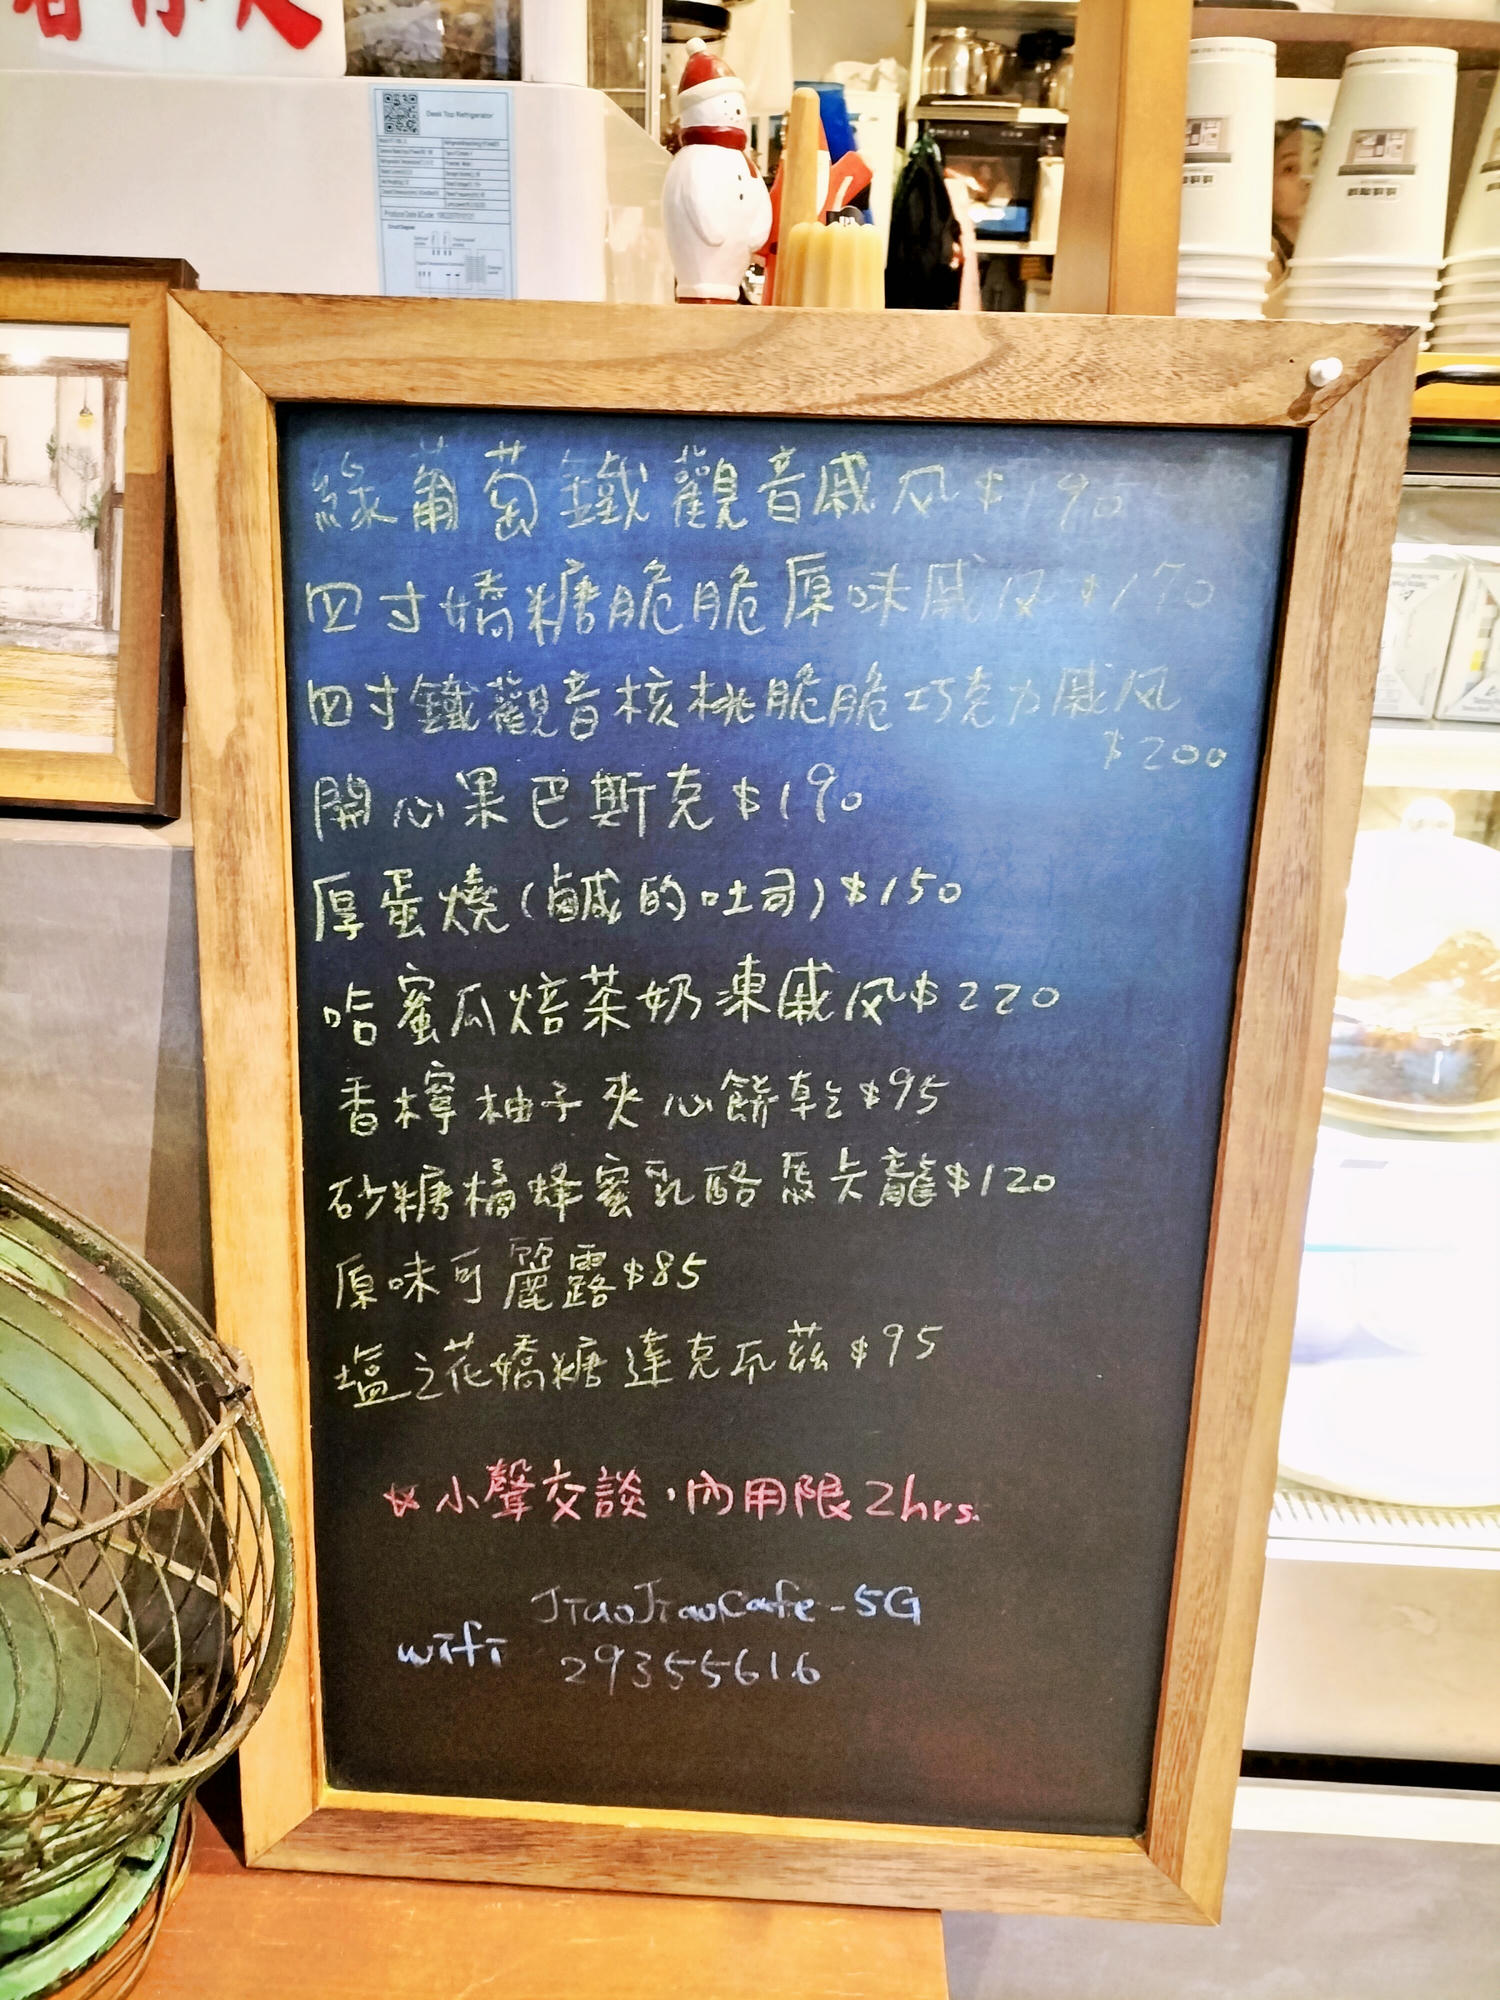 Desk Top Refrigerator
綠葡萄鐵觀音戚风$190
四寸嬌糖脆脆原味戚风$170
四寸鐵觀音核桃脆脆巧克力戚风
$200
開心果巴斯克$190
厚蛋燒(鹹的吐司)$150
哈蜜瓜焙茶奶凍戚风$220
香檸柚子夾心餅乾$95
砂糖橘蜂蜜乳酪馬卡龍$120
原味可麗露$85
塩之花嬌糖達克瓦茲$95
☆小聲交談,內用限2hrs.
JiaoJiaoCafe-5G
wifi
29355616